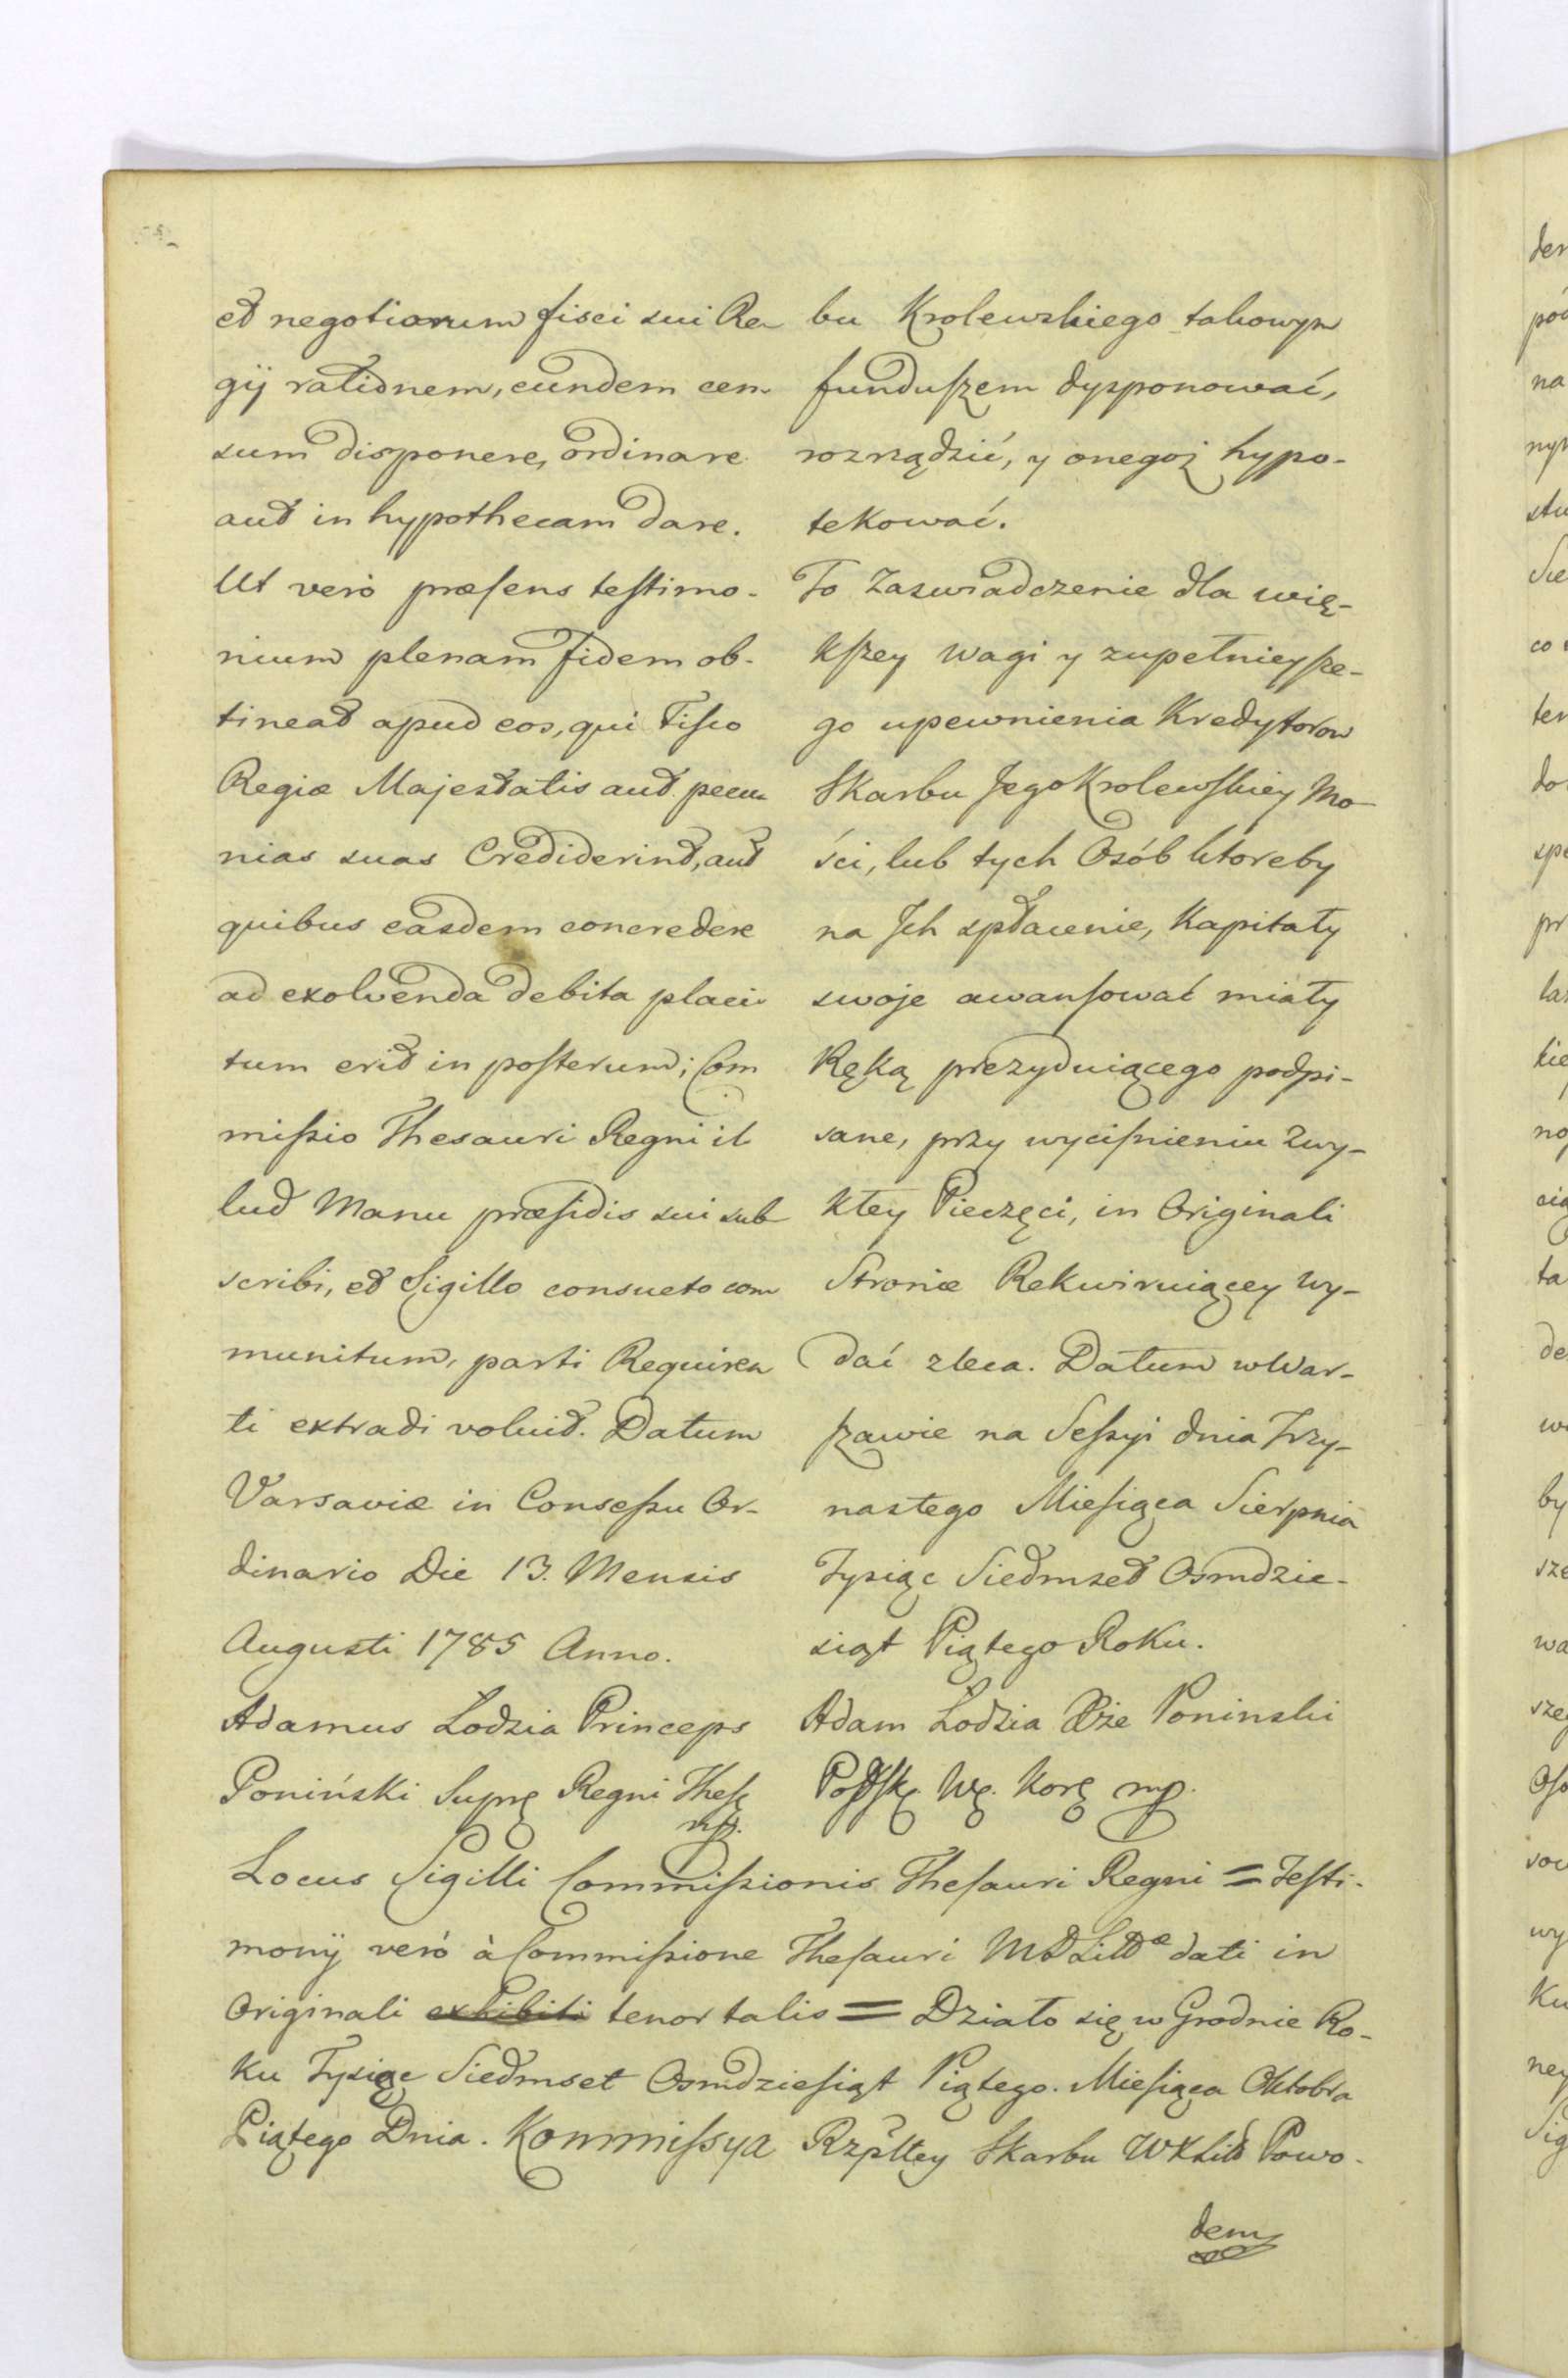 et negotiorum fisci sui Re-
gij rationem, eundem cen-
sum disponere, ordinare
aut in hypothecam dare.
Ut verò præsens testimo-
nium plenam fidem ob-
tineat apud eos, qui Fisco
Regiæ Majestatis aut pecu-
nias suas Crediderint, aut
quibus easdem concredere
ad exolvenda debita placi-
tum erit in posterum; Com
missio Thesauri Regni il
lud Manu præsidis sui sub-
scribi, et Sigillo consueto com
munitum, parti Requiren
ti extradi voluit. Datum
Varsaviæ in Consessu Or-
dinario Die 13. Mensis
Augusti 1785 Anno.
Adamus Lodzia Princeps
Poniński Supr Regni Thes
mp.
bu Krolewskiego takowym
funduszem dysponować,
rozrządzić, y onegoż hypo-
tekować.
To Zaswiadczenie dla wię-
kszey wagi y zupełnieysze-
go upewnienia Kredytorow
Skarbu Jego Krolewskiey Mo-
ści, lub tych Osób ktoreby
na Jch spłacenie, Kapitały
swoje awansować miały
Ręką prezyduiącego podpi-
sane, przy wycisnieniu Zwy-
kłey Pieczęci, in Originali
Stronie Rekwiruiącey wy-
dać zleca. Datum w War-
szawie na Sessyi dnia Trzy-
nastego Miesiąca Sierpnia
Tysiąc Siedmset Osmdzie-
siąt Piątego Roku.
Adam Lodzia Xże Poninski
Podsk. W. Kor mp.
Locus Sigilli Commissionis Thesauri Regni = Testi-
monij verò à Commissione Thesauri MDLittæ dati in
Originali exhibiti tenor talis = Działo się w Grodnie Ro-
ku Tysiąc Siedmset Osmdziesiąt Piątego. Miesiąca Oktobra
Piątego Dnia. Kommissya Rzpltey Skarbu WXLitt Powo-
dem